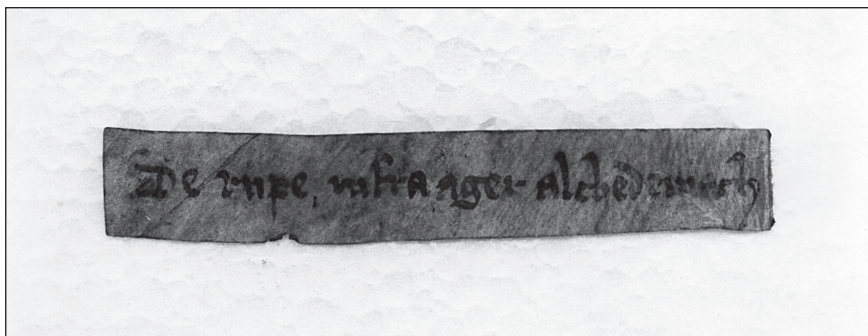 De rupe infra ager alchedemach